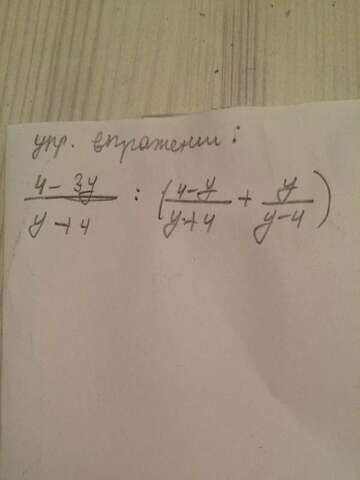 упр. выражении:
4-3y / y+4 : (4-y / y+4 + y / y-4)